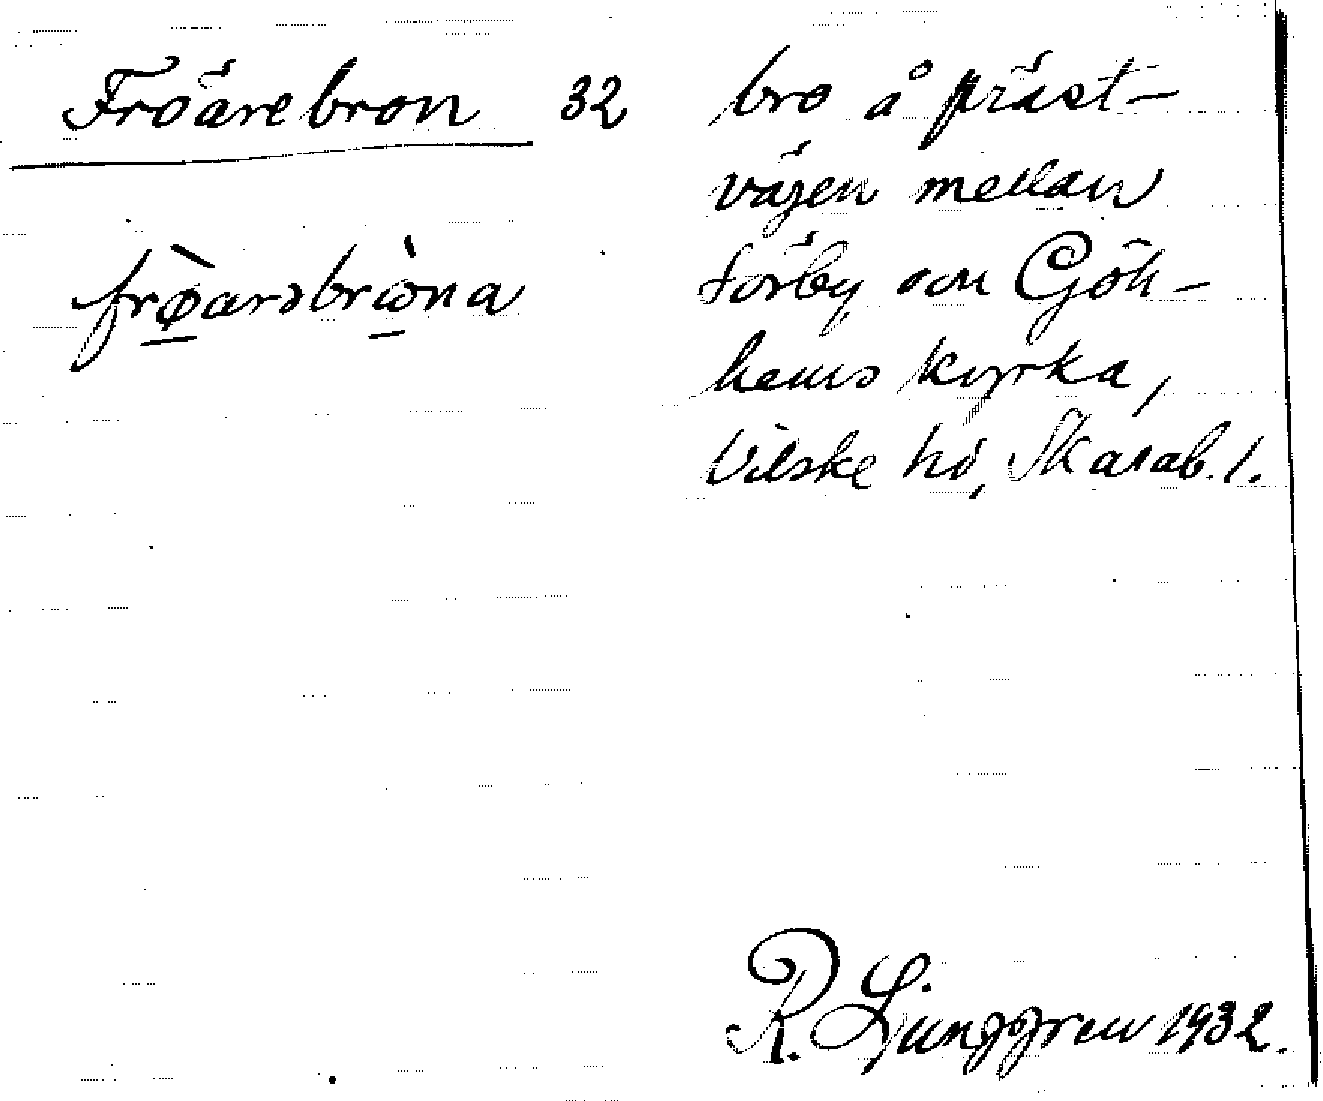 Froärebron 32
frøarsbrωna
bro å präst-
vägen mellan
Sörby och Göte-
hems kyrka,
Vilske hd, Skarab. l.
R. Ljunggren 1932.